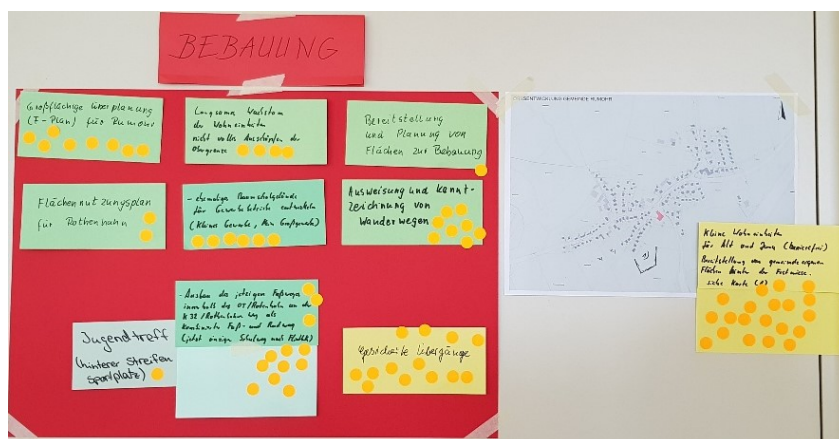 BEBAUUNG
Großflächige Überplanung
(F-Plan) für Rumohr
Langsames Wachstum
der Wohneinheiten
nicht volle Ausschöpfen der
Obergrenze
Bereitstellung
und Planung von
Flächen zur Bebauung
Flächennutzungsplan
für Rotenhahn
- ehemalige
für Gewerbebetriebe entwickeln
(Kleines Gewerbe, kein Großgewerbe)
Ausweisung und Kennt-
zeichnung von
Wanderwegen
- Ausbau des jetzigen Fußwegs
innerhalb des OT/Rotenhahn an der
K32/Rotenhahner Weg als
kombinierte Fuß- und Radweg
(jetzt einzige Schulweg nach Flintbek)
Jugendtreff
(hinterer Streifen
Sportplatz)
Gesicherte Übergänge
GEMEINDE RUMOHR
Kleine Wohneinheiten
für Alt und Jung (barrierefrei)
Bereitstellung von gemeindeeigenen
Flächen hinter der Festwiese.
siehe Karte (1)